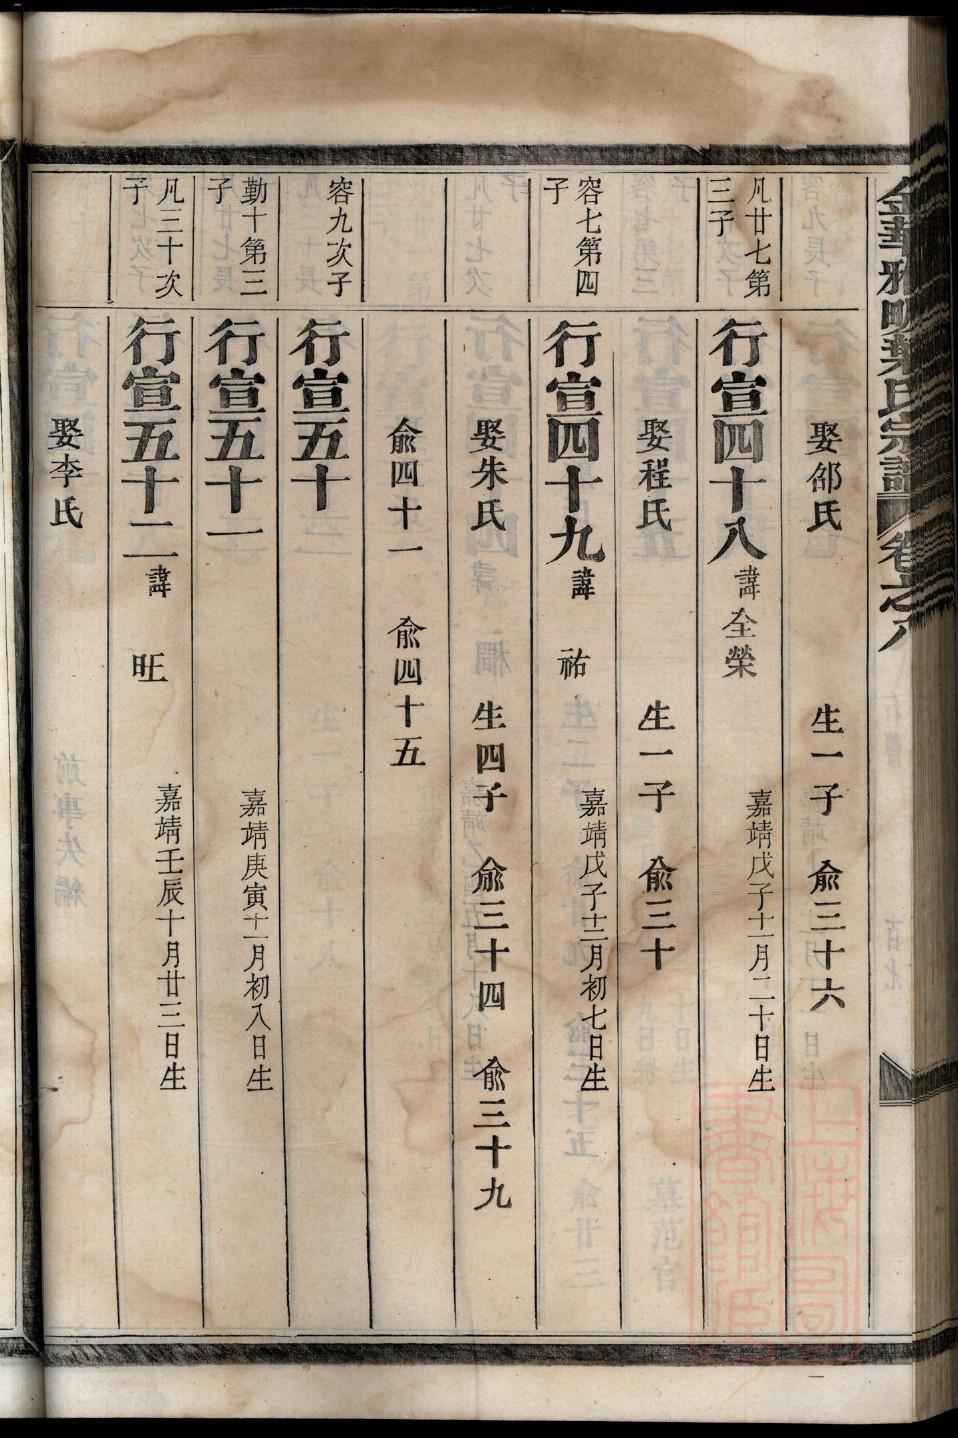 金華雅畈葉氏宗譜 卷之八
娶邵氏 生一子 俞三十六
凡廿七第三子
行宣四十八 諱全榮 嘉靖戊子十一月二十日生
娶程氏 生一子 俞三十
容七第四子
行宣四十九 諱祐 嘉靖戊子十二月初七日生
娶朱氏 生四子 俞三十四 俞三十九
俞四十一 俞四十五
容九次子
行宣五十
勤十第三子
行宣五十一 嘉靖庚寅十一月初八日生
凡三十次子
行宣五十二 諱旺 嘉靖壬辰十月廿三日生
娶李氏